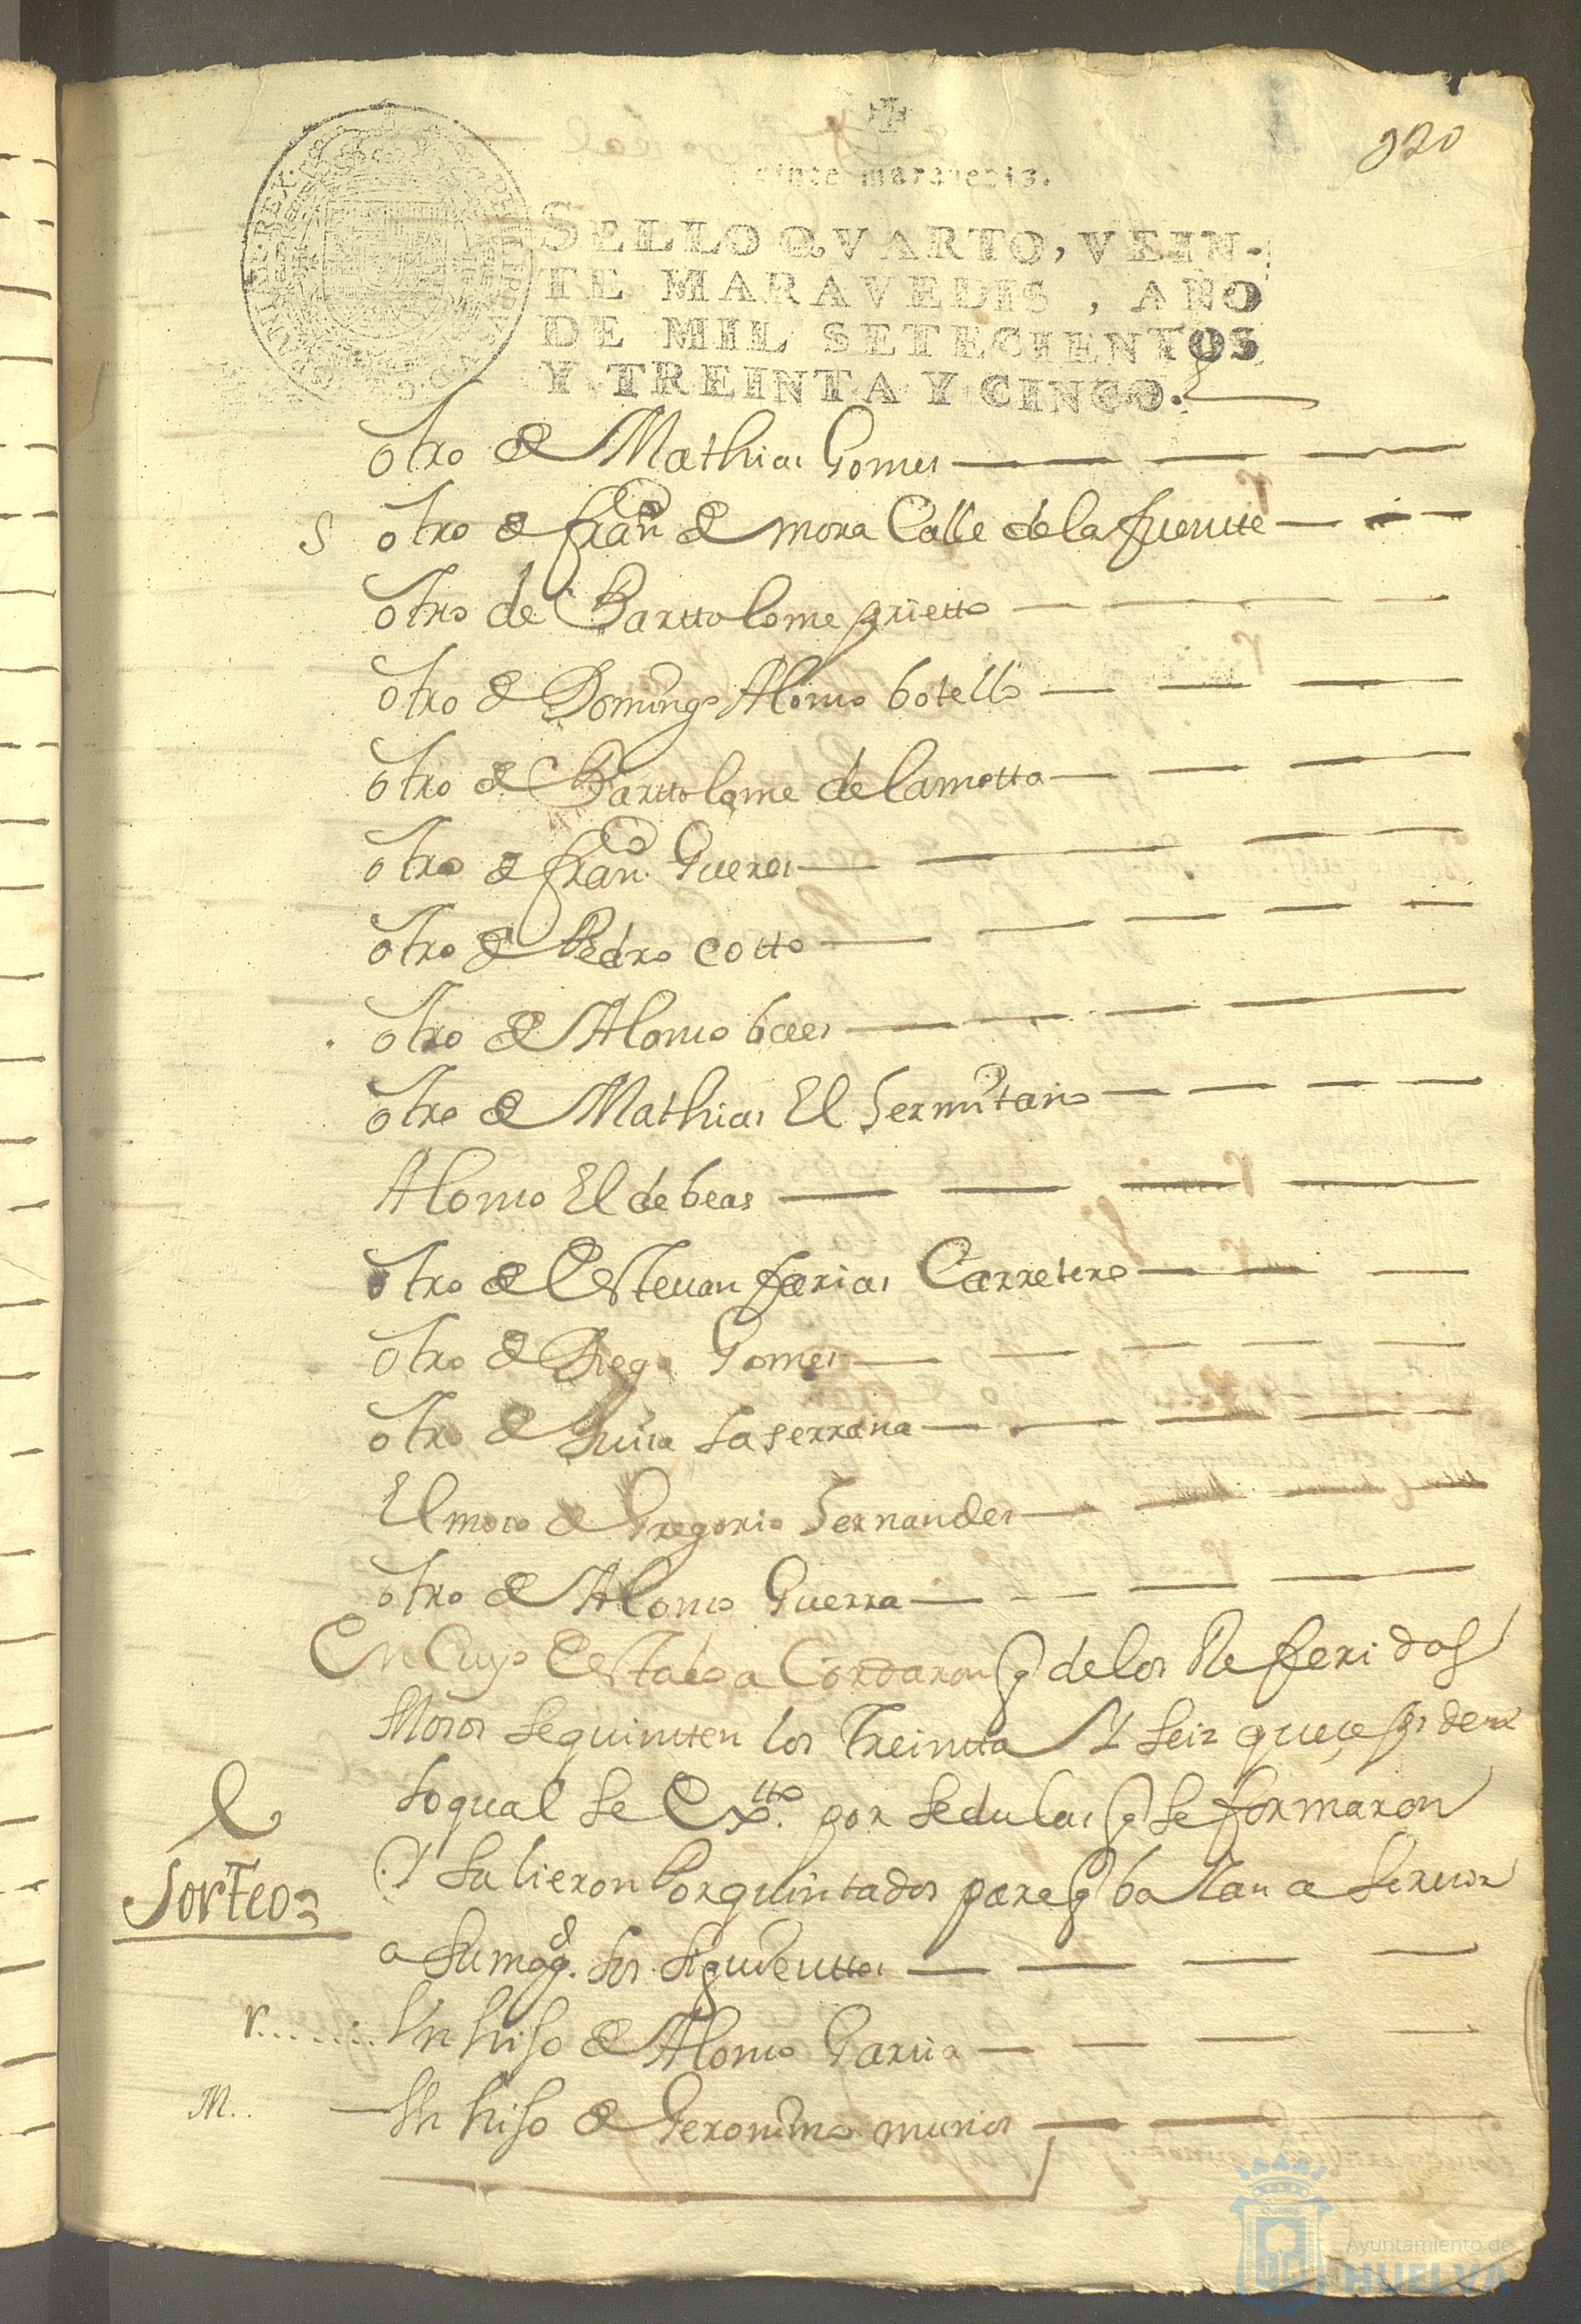 920
Veinte maravedis.
SELLO QVARTO, VEIN-
TE MARAVEDIS, AÑO
DE MIL SETECIENTOS
Y TREINTA Y CINCO.
otro de Mathias Gomes
S otro de franco de mora Calle de la fuentte
otro de Barttolome prietto
otro de Domingo Alonso botello
otro de Barttolome de la motta
otro de franco Gueros
otro de Pedro Cotto
otro de Alonso baes
otro de Mathias El hermitaño
Alonso El de beas
otro de Estevan farias Carretero
otro de Diego Gomes
otro de Lucia la serrana
El moso de Gregorio Fernandes
otro de Alonso Guerra
En Cuyo Estado a Cordaron q de los Referidos
Mosos se quintten los Treintta Y seis que se piden
lo qual se Extto. por sedulas q se formaron
Y salieron Por quintados para q baian a servir
Sorteo
a su magd. los siguienttes
r...... Un hijo de Alonso Garcia
M.. Un hijo de Geronimo munios
Ayuntamiento de
HUELVA